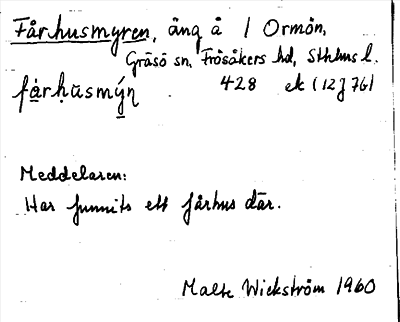 Fårhusmyren, äng å 1 Ormön,
Gräsö sn, Frösåkers hd, Sthlms l.
fårhūsmýn 428 ek (12J 76)
Meddelaren:
Har funnits ett fårhus där.
Malte Wickström 1960